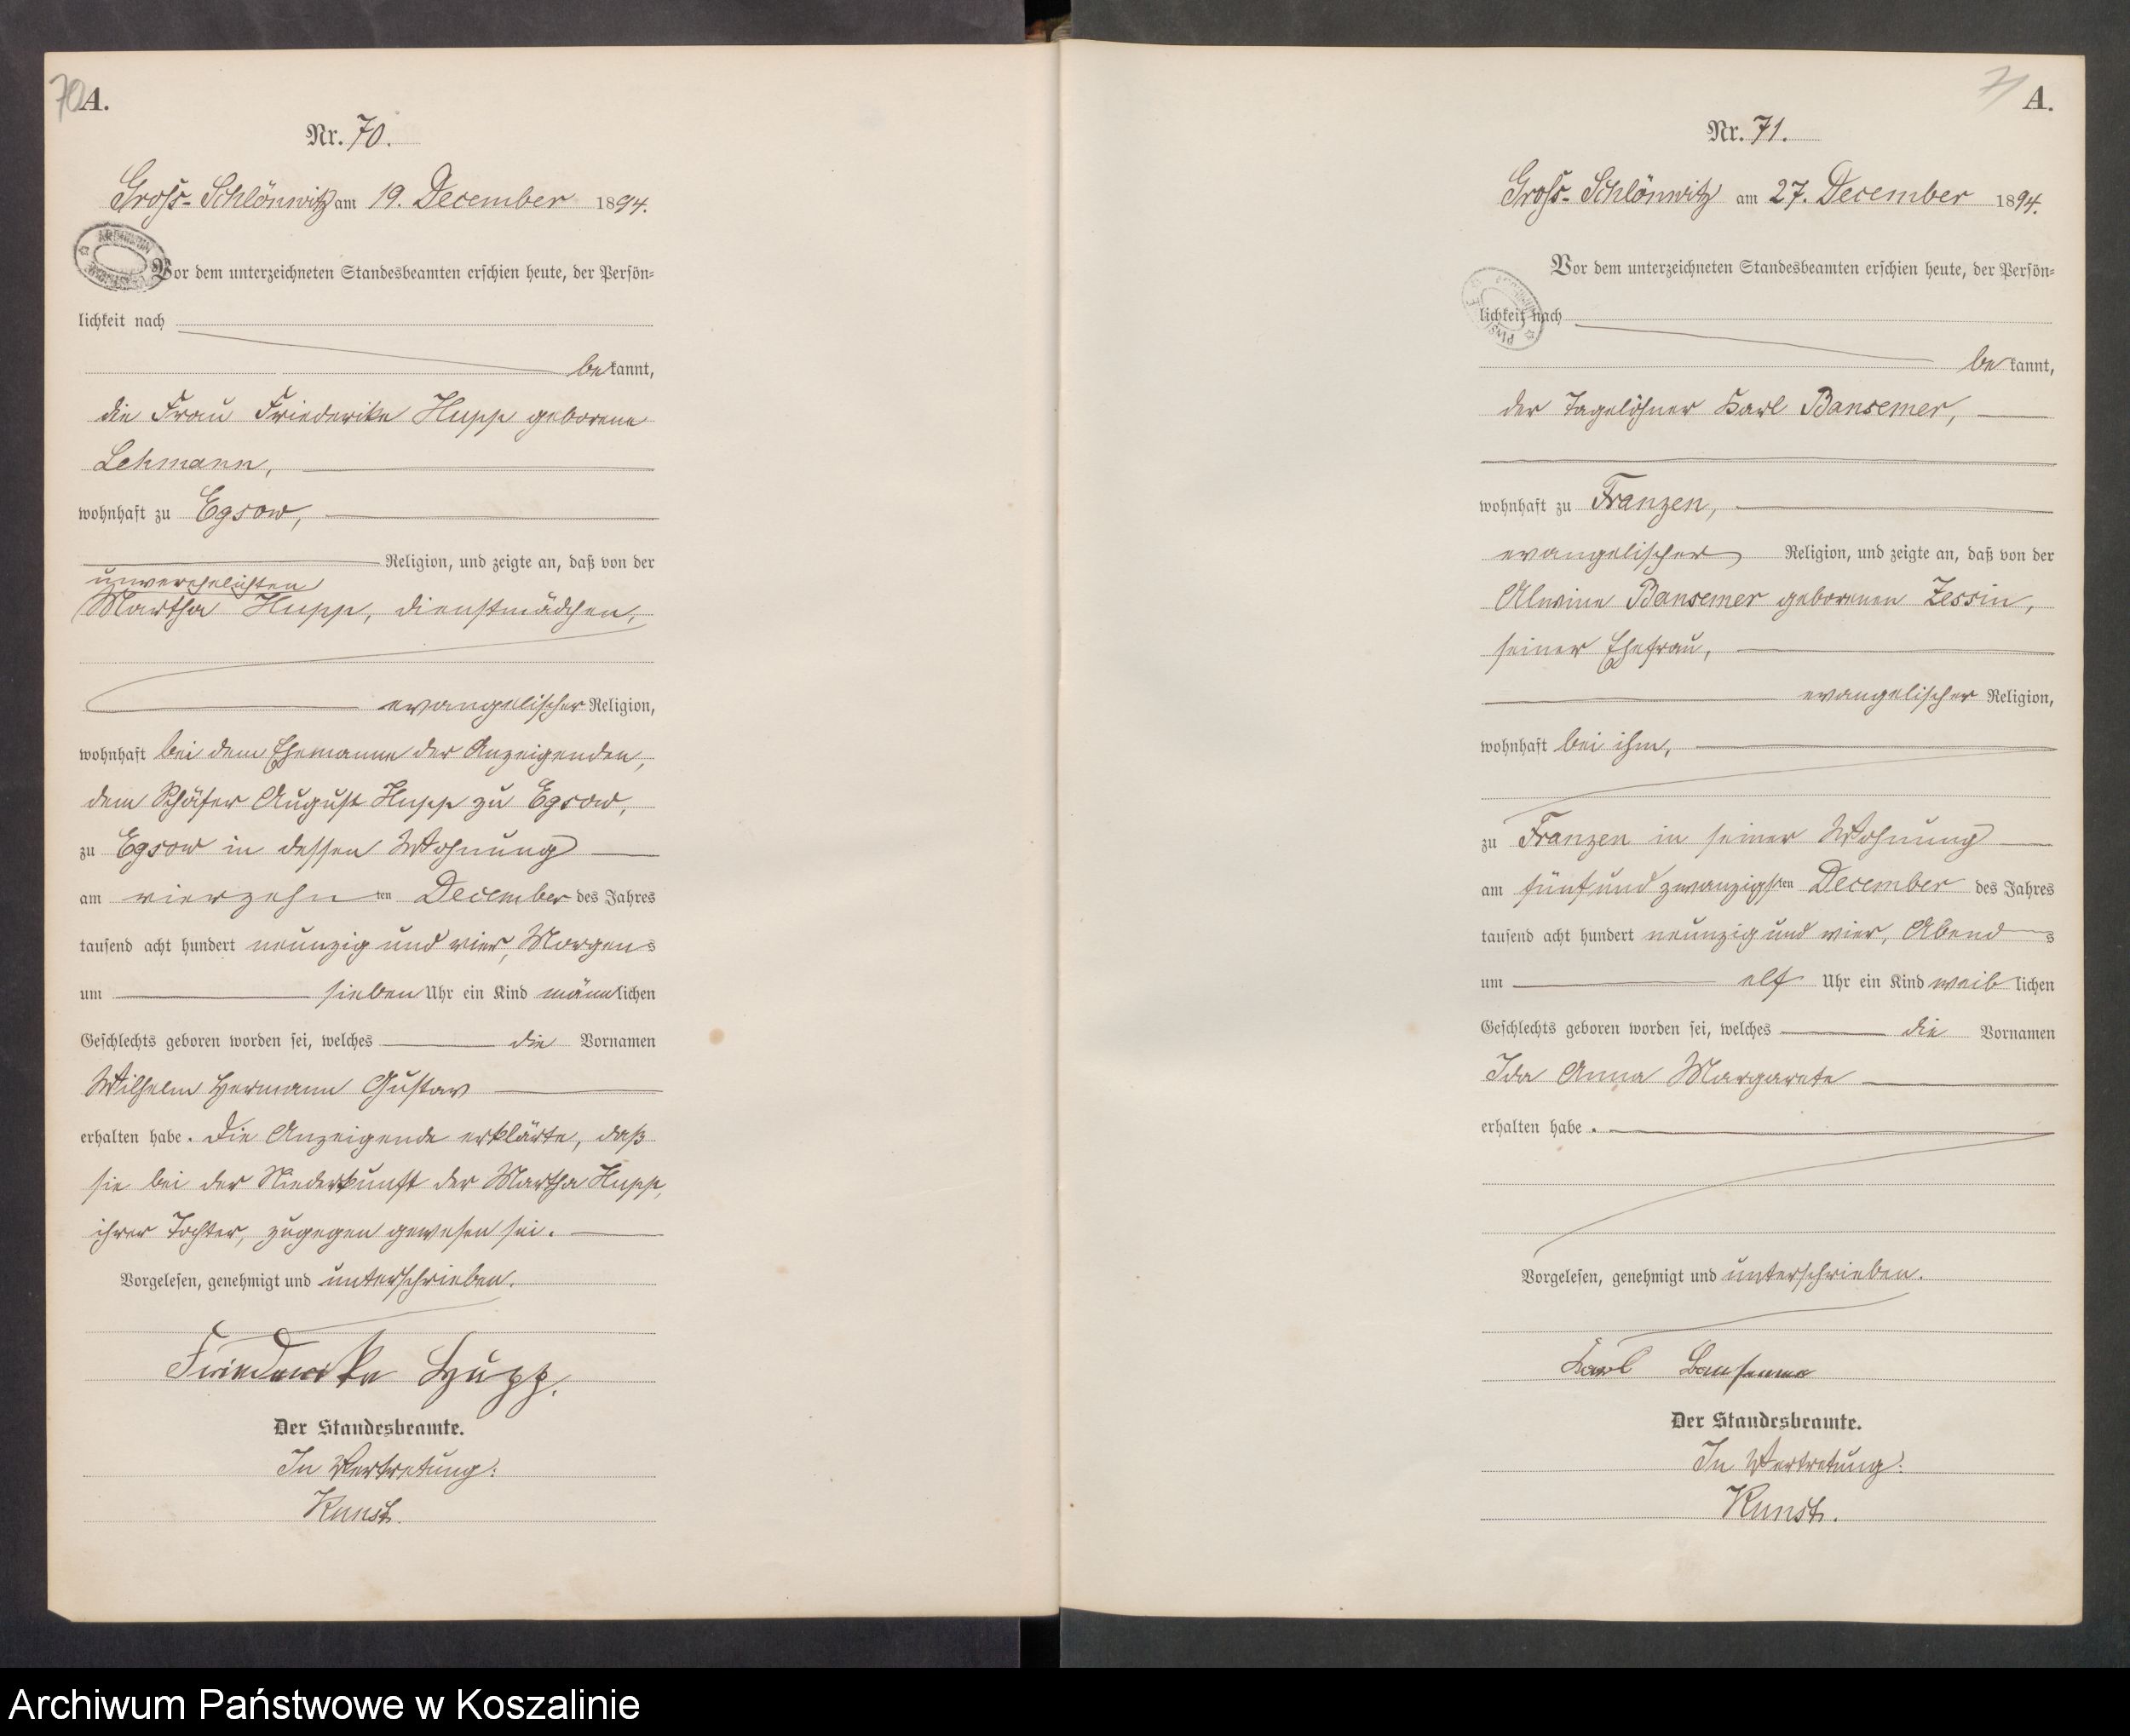 70 A.
Nr. 70.
Groß-Schlönwitz am 19. December 1894.
Vor dem unterzeichneten Standesbeamten erschien heute, der Persön-
lichkeit nach
bekannt,
die Frau Friederike Hupp geborene
Lehmann,
wohnhaft zu Egsow,
Religion, und zeigte an, daß von der
unverehelichten
Martha Hupp, Dienstmädchen,
evangelischer Religion,
wohnhaft bei dem Ehemanne der Anzeigenden,
dem Schäfer August Hupp zu Egsow,
zu Egsow in dessen Wohnung
am vierzehnten December des Jahres
tausend acht hundert neunzig und vier, Morgens
um sieben Uhr ein Kind männlichen
Geschlechts geboren worden sei, welches die Vornamen
Wilhelm Hermann Gustav
erhalten habe. Die Anzeigende erklärte, daß
sie bei der Niederkunft der Martha Hupp,
ihrer Tochter, zugegen gewesen sei.
Vorgelesen, genehmigt und unterschrieben.
Friederike Hupp.
Der Standesbeamte.
In Vertretung:
Kunst.
71 A.
Nr. 71.
Groß-Schlönwitz am 27. December 1894.
Vor dem unterzeichneten Standesbeamten erschien heute, der Persön-
lichkeit nach
bekannt,
der Tagelöhner Karl Bansemer,
wohnhaft zu Franzen,
evangelischer Religion, und zeigte an, daß von der
Alwine Bansemer geborenen Zessin,
seiner Ehefrau,
evangelischer Religion,
wohnhaft bei ihm,
zu Franzen in seiner Wohnung
am fünf und zwanzigsten December des Jahres
tausend acht hundert neunzig und vier, Abends
um elf Uhr ein Kind weiblichen
Geschlechts geboren worden sei, welches die Vornamen
Ida Anna Margarete
erhalten habe.
Vorgelesen, genehmigt und unterschrieben.
Karl Bansemer
Der Standesbeamte.
In Vertretung:
Kunst.
Archiwum Państwowe w Koszalinie